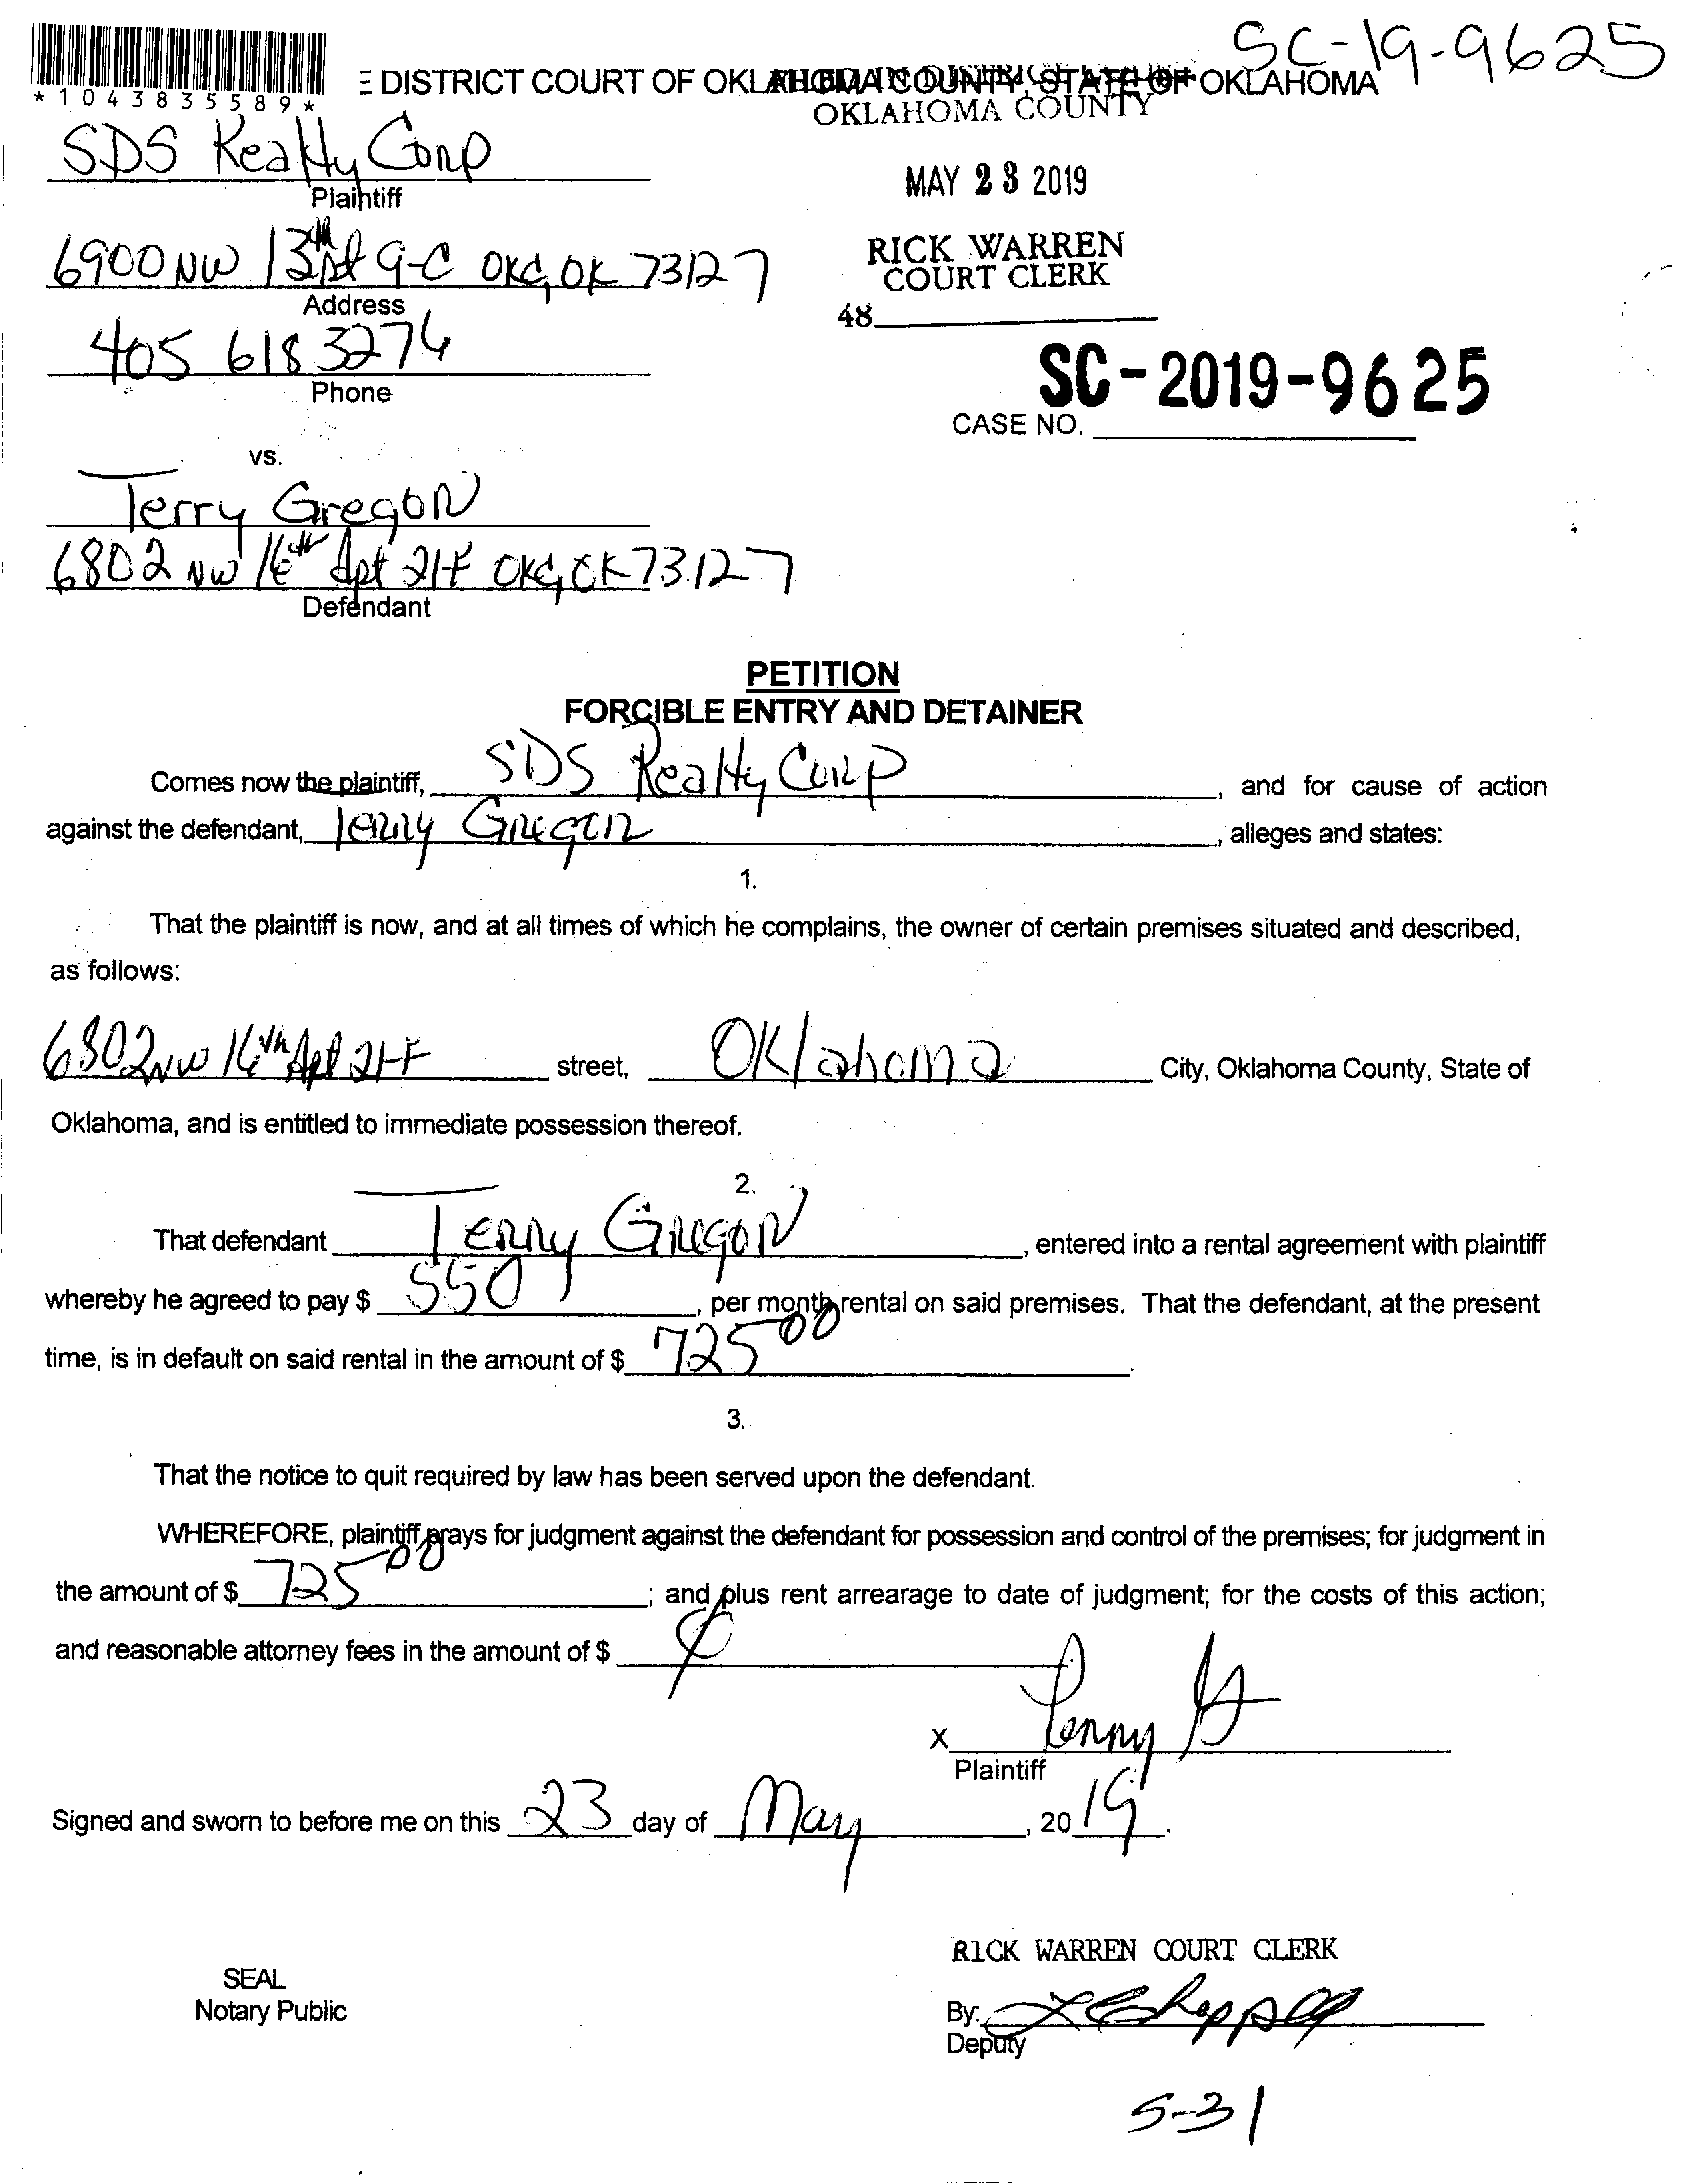 SC-19-9625
*1043835589*
E DISTRICT COURT OF OKLAHOMA COUNTY, STATE OF OKLAHOMA
FILED IN DISTRICT COURT
OKLAHOMA COUNTY
SDS Realty Corp
Plaintiff
MAY 23 2019
6900 NW 13th Apt 9-C OKC, OK 73127
Address
RICK WARREN
COURT CLERK
48
405 618 3274
Phone
SC-2019-9625
CASE NO.
vs.
Terry Gregor
6802 NW 16th Apt 21F OKC, OK 73127
Defendant
PETITION
FORCIBLE ENTRY AND DETAINER
Comes now the plaintiff, SDS Realty Corp, and for cause of action
against the defendant, Terry Gregor, alleges and states:
1.
That the plaintiff is now, and at all times of which he complains, the owner of certain premises situated and described,
as follows:
6802 NW 16th Apt 21-F street, Oklahoma City, Oklahoma County, State of
Oklahoma, and is entitled to immediate possession thereof.
2.
That defendant Terry Gregor, entered into a rental agreement with plaintiff
whereby he agreed to pay $ 550, per month rental on said premises. That the defendant, at the present
time, is in default on said rental in the amount of $ 725 00.
3.
That the notice to quit required by law has been served upon the defendant.
WHEREFORE, plaintiff prays for judgment against the defendant for possession and control of the premises; for judgment in
the amount of $ 725 00; and plus rent arrearage to date of judgment; for the costs of this action;
and reasonable attorney fees in the amount of $
X Penny
Plaintiff
Signed and sworn to before me on this 23 day of May, 2019.
RICK WARREN COURT CLERK
SEAL
Notary Public
By:
Deputy
5-31